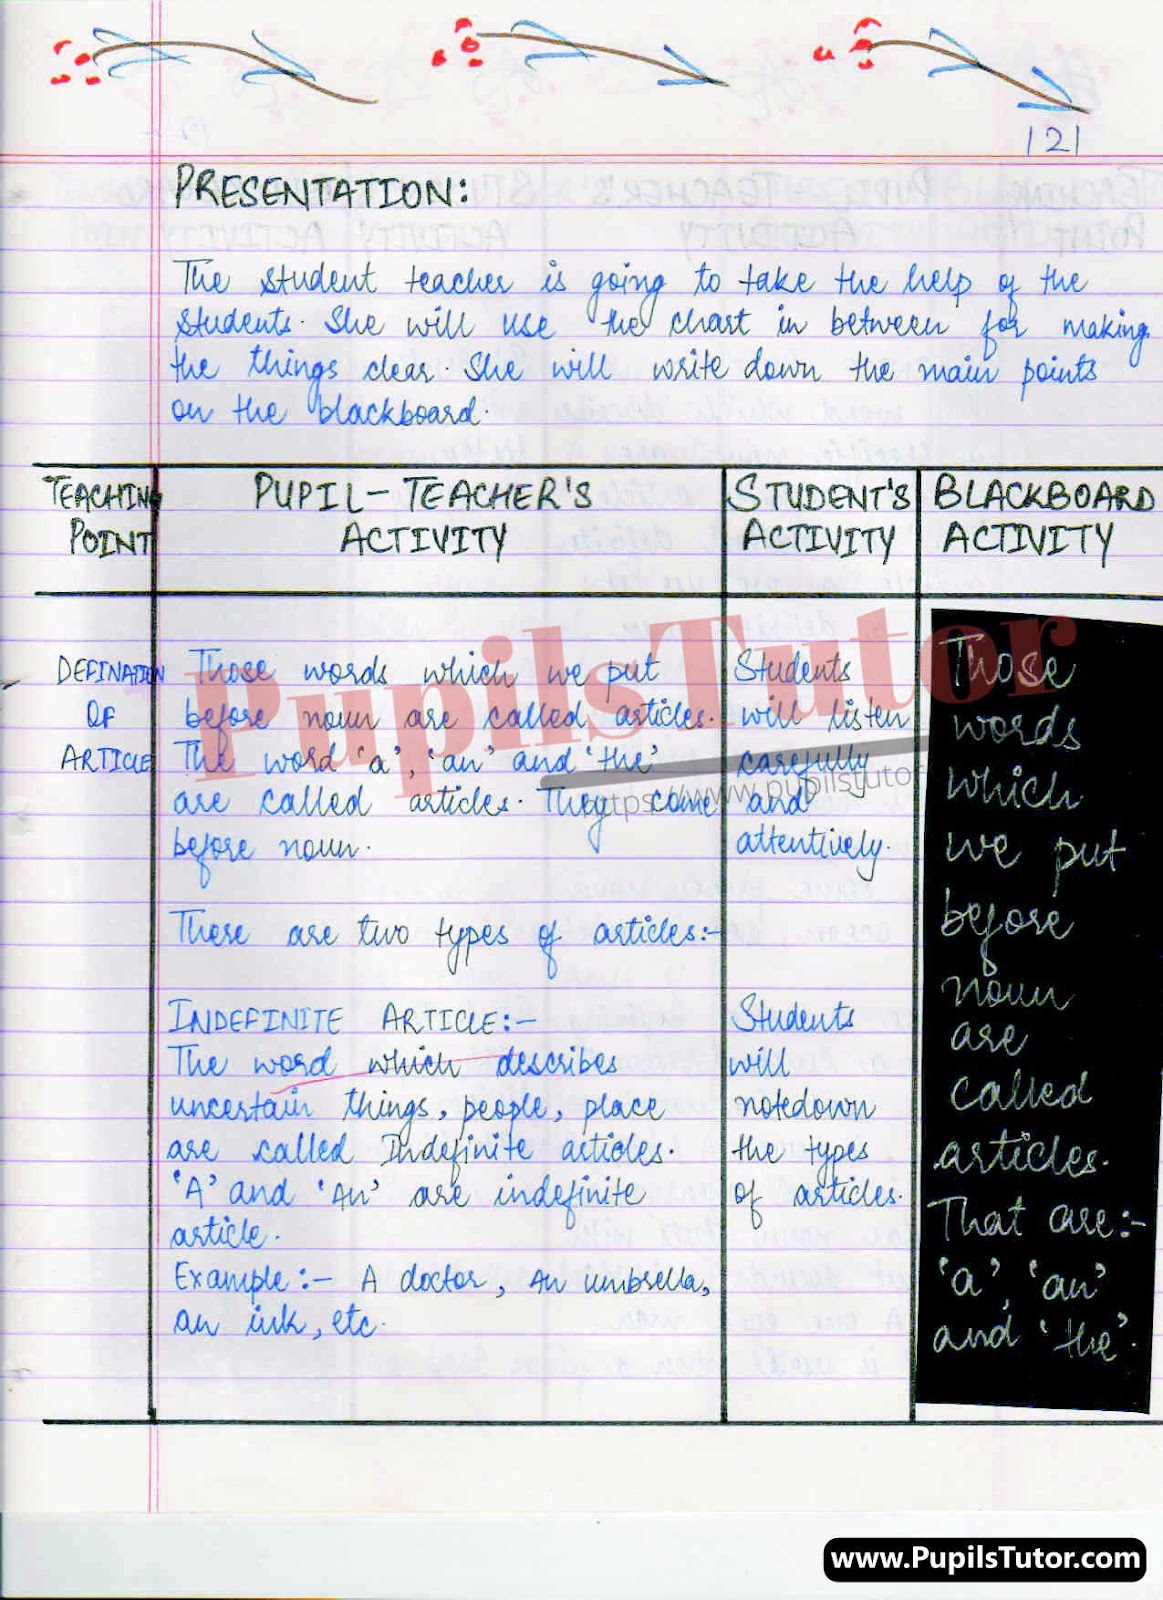 121
PRESENTATION:
The student teacher is going to take the help of the
students. She will use the chart in between for making
the things clear. She will write down the main points
on the blackboard.
TEACHING
POINT
PUPIL-TEACHER'S
ACTIVITY
STUDENT'S
ACTIVITY
BLACKBOARD
ACTIVITY
DEFINATION
OF
ARTICLE
Those words which we put
before noun are called articles.
The word 'a', 'an' and 'the'
are called articles. They come
before noun.
There are two types of articles:-
INDEFINITE ARTICLE:-
The word which describes
uncertain things, people, place
are called Indefinite articles.
'A' and 'An' are indefinite
article.
Example:- A doctor, An umbrella,
an ink, etc.
Students
will listen
carefully
and
attentively.
Students
will
notedown
the types
of articles.
Those
words
which
we put
before
noun
are
called
articles.
That are:-
'a', 'an'
and 'the'.
PupilsTutor
https://www.pupilstutor
www.PupilsTutor.com